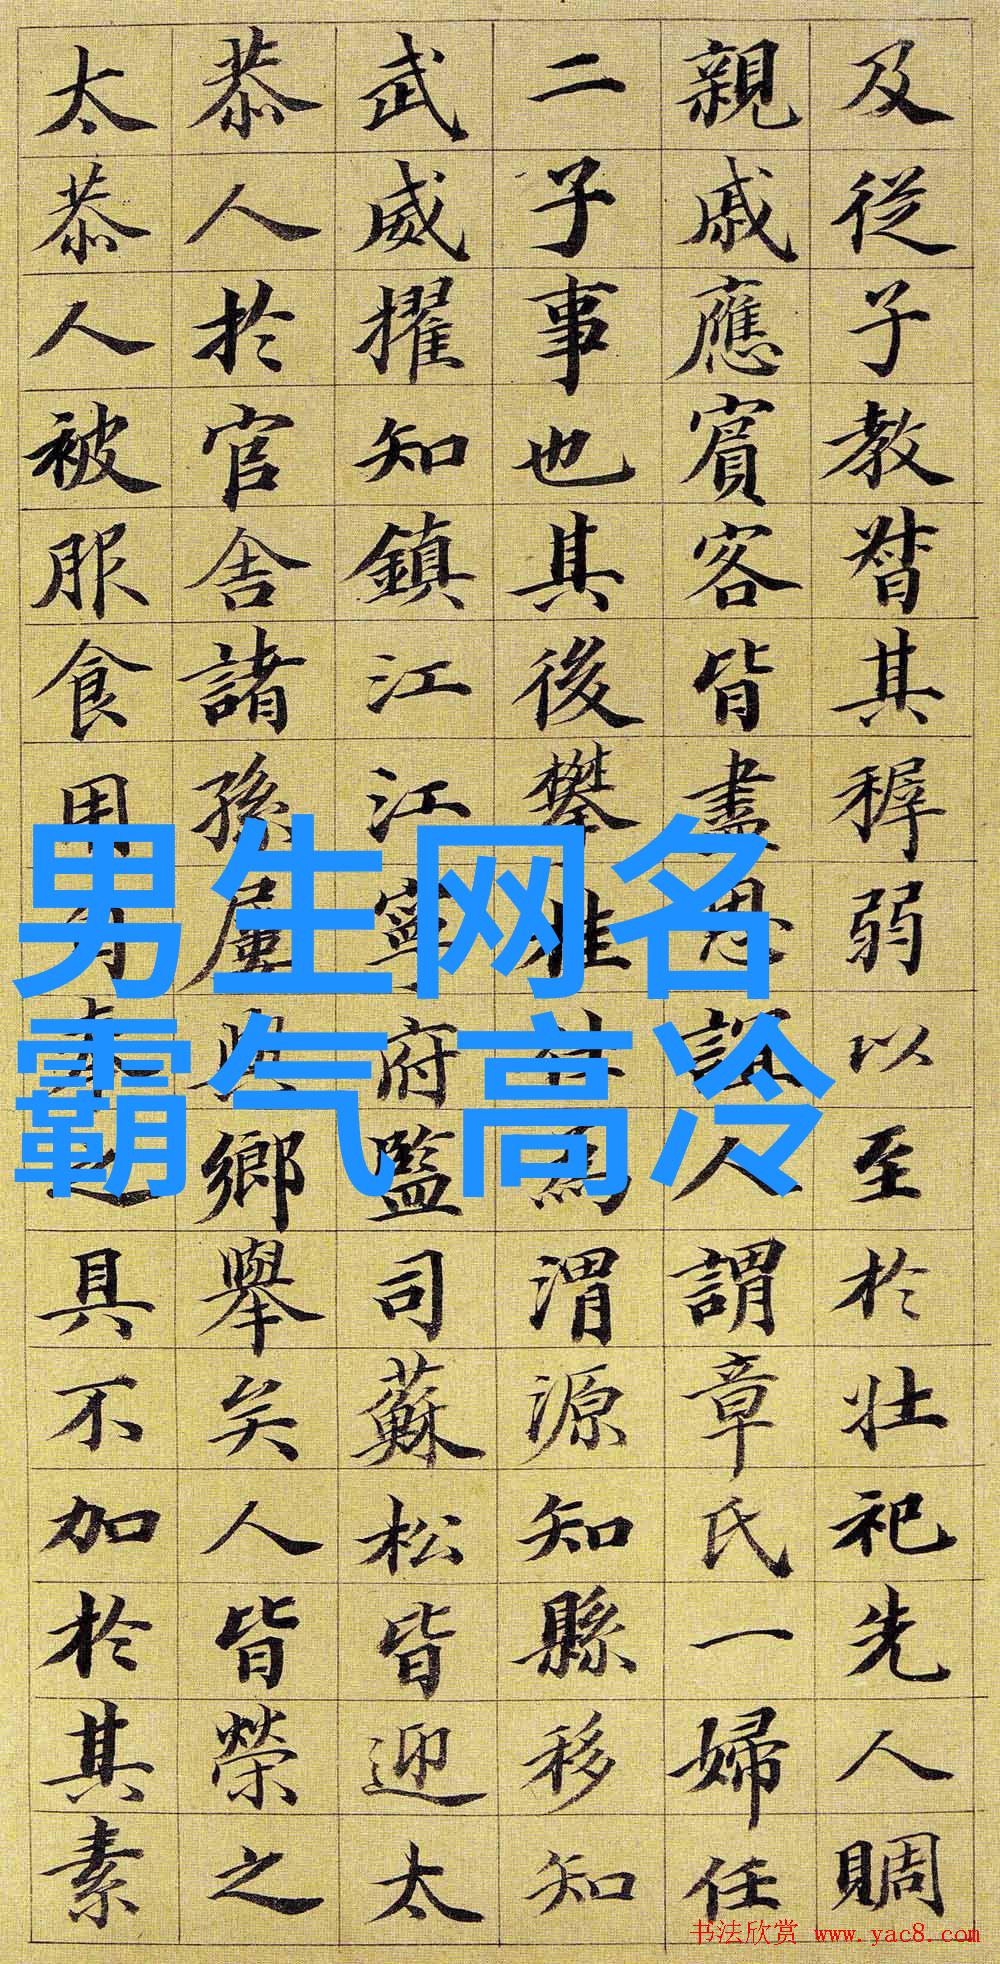 及從子教督其穉弱以至於壯祀先人賙
親戚應賓客皆盡恩誼人謂章氏一婦任
二子事也其後攀桂為渭源知縣移知
武威擢知鎮江江寧府監司蘇松皆迎太
恭人於官舍諸孫屢與鄉舉矣人皆榮之
太恭人被服食用之具不加於其素
男生网名
霸气高冷
书法欣赏 www.yac8.com